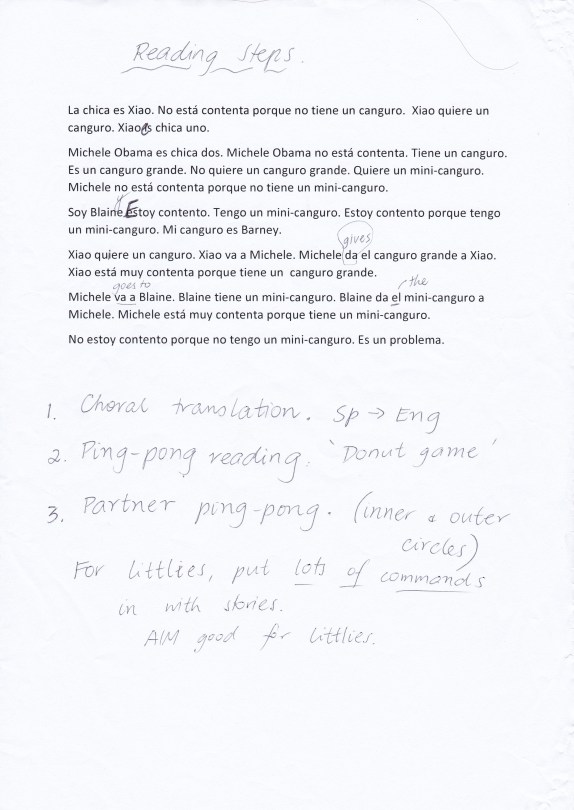 Reading Steps.
La chica es Xiao. No está contenta porque no tiene un canguro. Xiao quiere un
canguro. Xiao es chica uno.
Michele Obama es chica dos. Michele Obama no está contenta. Tiene un canguro.
Es un canguro grande. No quiere un canguro grande. Quiere un mini-canguro.
Michele no está contenta porque no tiene un mini-canguro.
Soy Blaine. Estoy contento. Tengo un mini-canguro. Estoy contento porque tengo
un mini-canguro. Mi canguro es Barney.
gives
Xiao quiere un canguro. Xiao va a Michele. Michele da el canguro grande a Xiao.
Xiao está muy contenta porque tiene un canguro grande.
goes to the
Michele va a Blaine. Blaine tiene un mini-canguro. Blaine da el mini-canguro a
Michele. Michele está muy contenta porque tiene un mini-canguro.
No estoy contento porque no tengo un mini-canguro. Es un problema.
1. Choral translation. Sp → Eng
2. Ping-pong reading. 'Donut game'
3. Partner ping-pong. (inner & outer
circles)
For littlies, put lots of commands
in with stories.
AIM good for littlies.